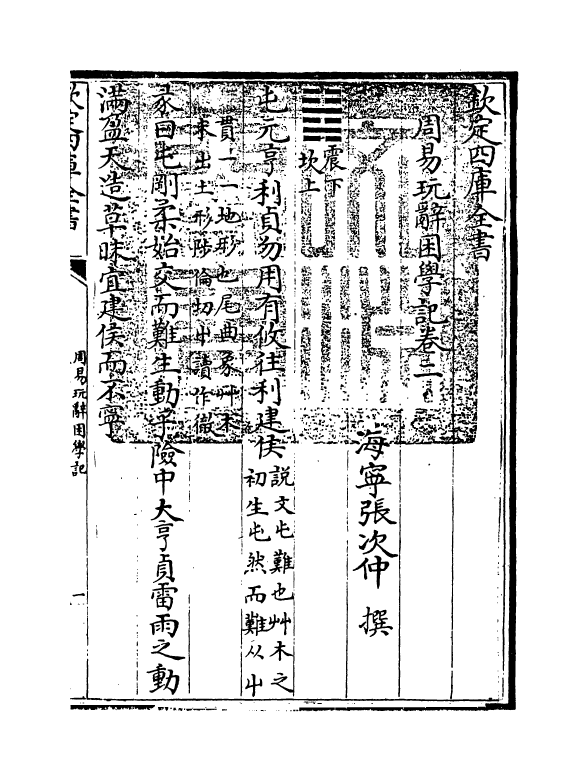 欽定四庫全書
周易玩辭困學記卷二
海寧張次仲 撰
震下
坎上
屯元亨利貞勿用有攸往利建侯
説文屯難也艸木之
初生屯然而難从屮
貫一一地形也尾曲象艸木
未出土形陟倫切屮讀作徹
彖曰屯剛柔始交而難生動乎險中大亨貞雷雨之動
滿盈天造草昧宜建侯而不寧
欽定四庫全書
周易玩辭困學記
一